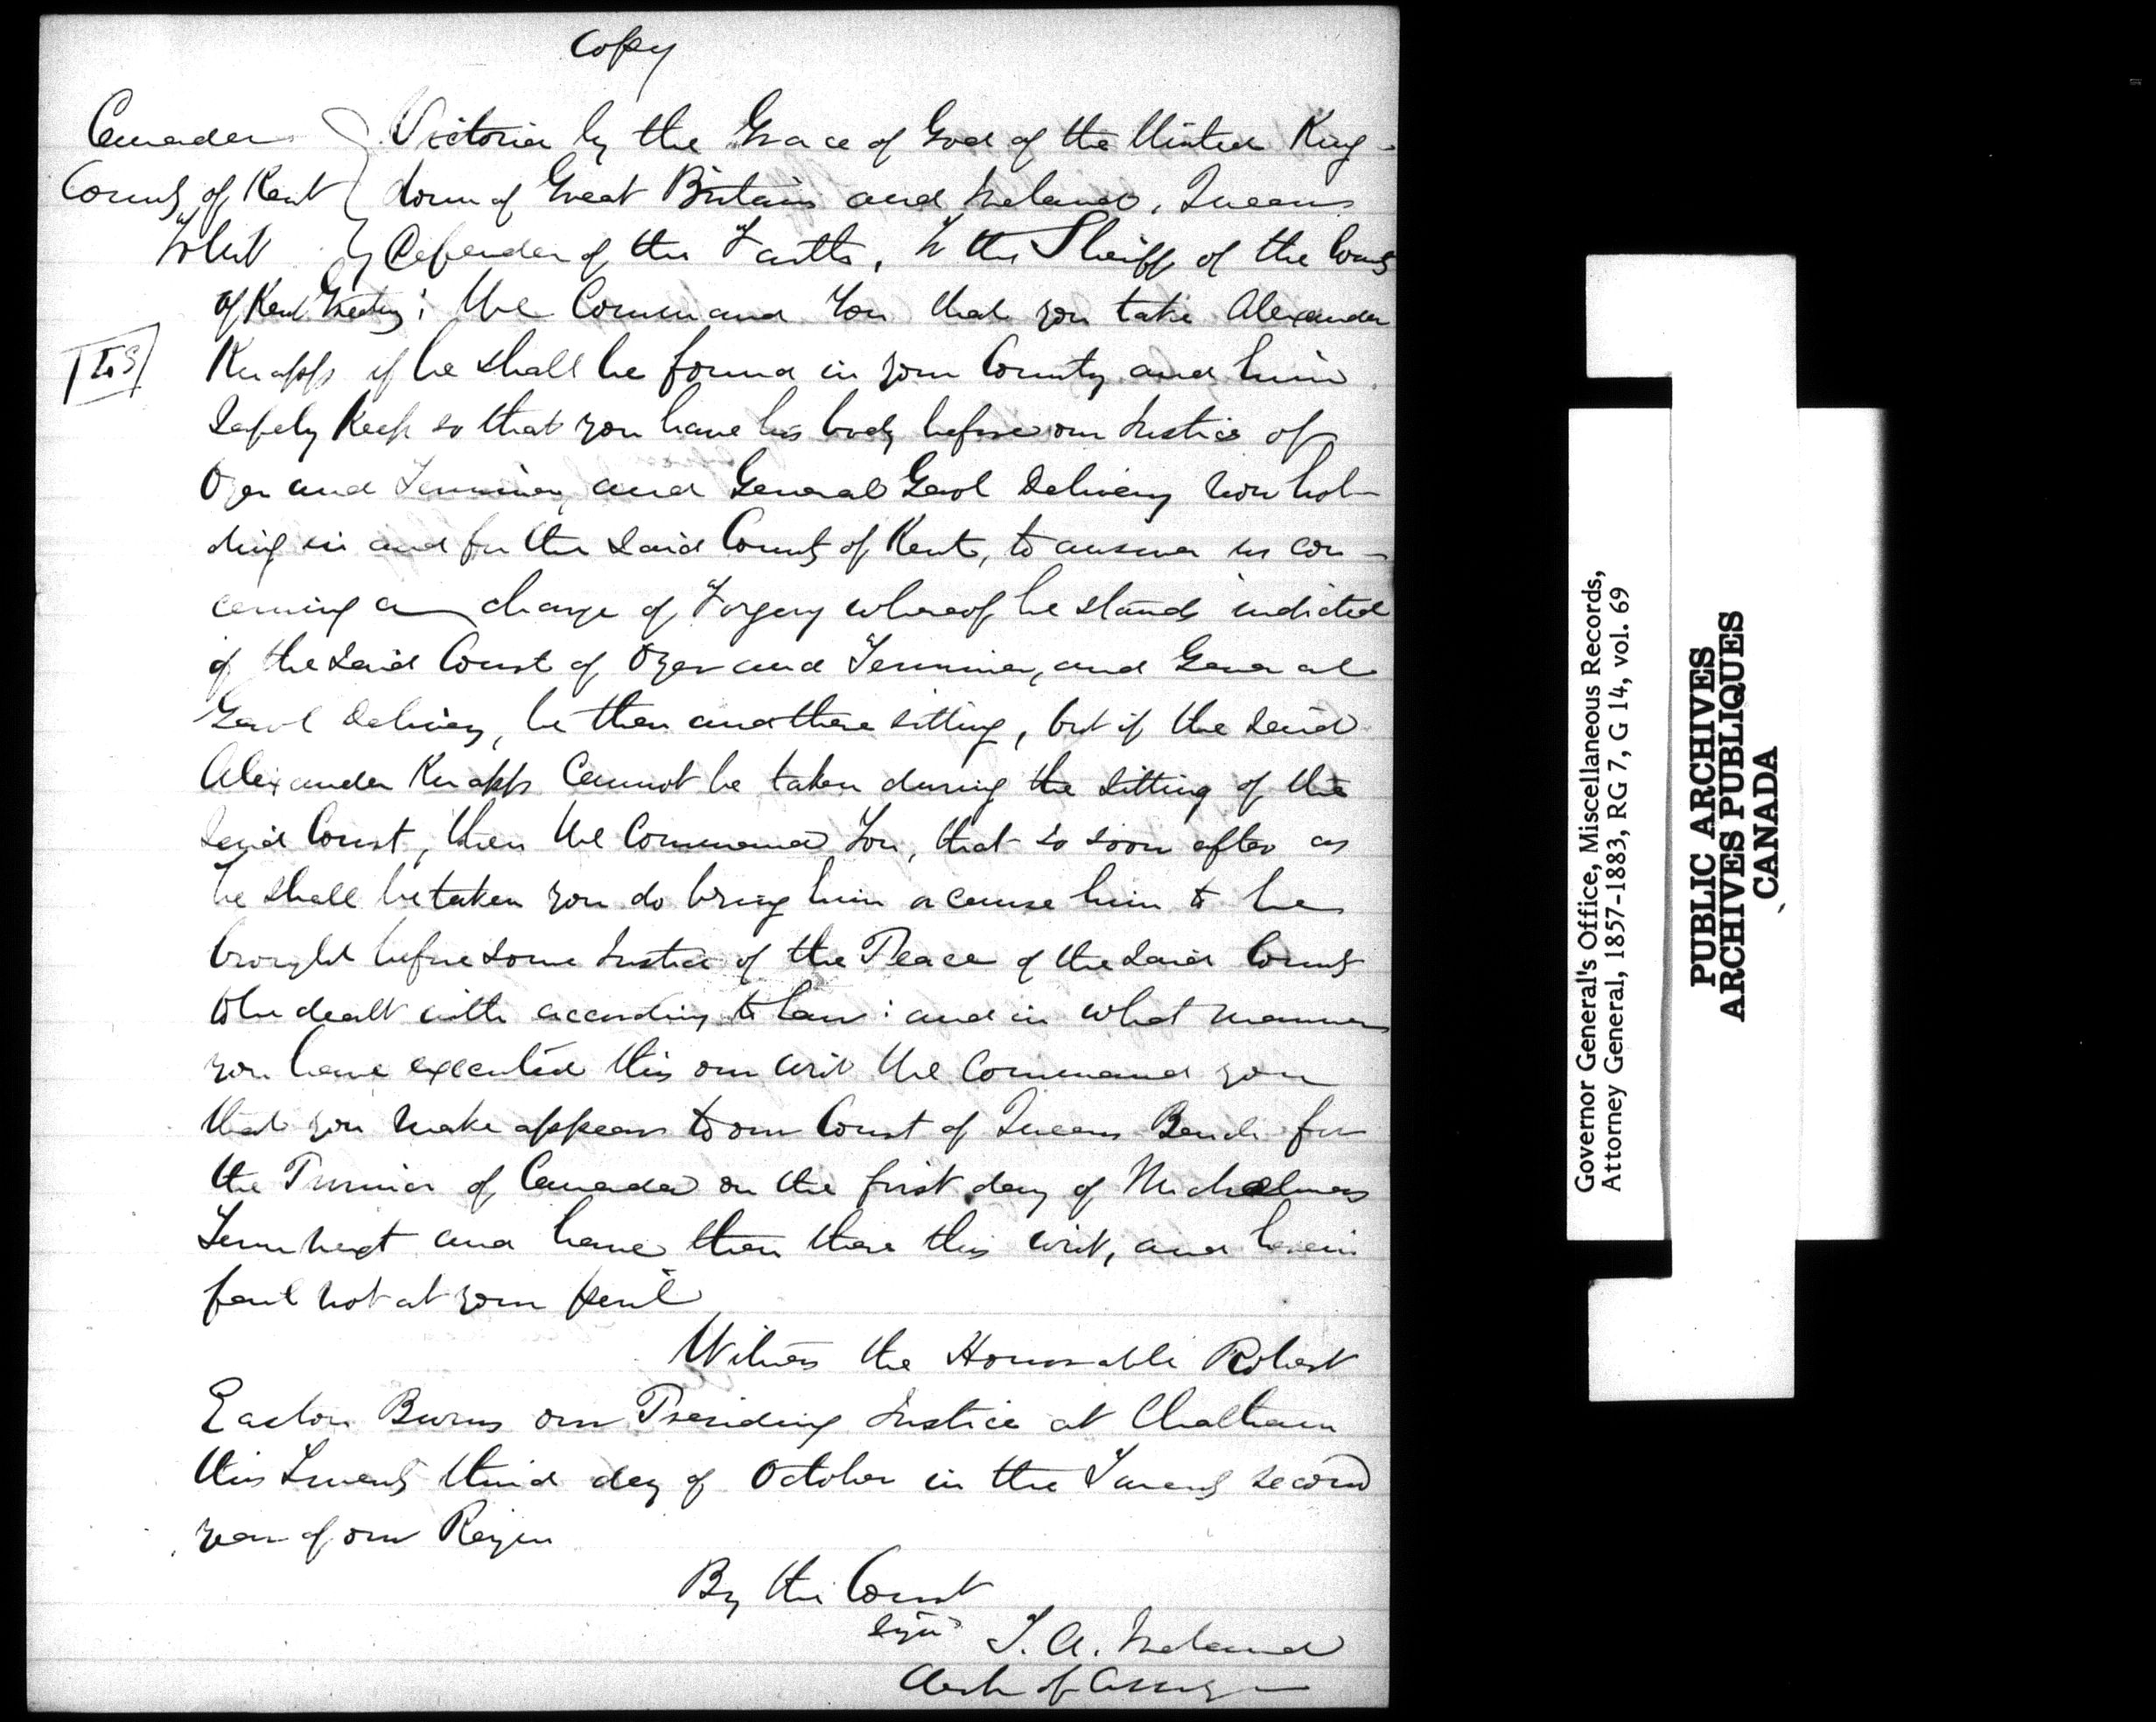 Copy
Canada
County of Kent
to Wit
Victoria by the Grace of God of the United King-
dom of Great Britain and Ireland, Queen
Defender of the Faith, To the Sheriff of the County
of Kent Greeting: We Command You that you take Alexander
L.S
Knapp if he shall be found in your County, and him
Safely Keep so that you have his body before our Justice of
Oyer and Terminer, and General Gaol Delivery now hol-
ding in and for the said County of Kent, to answer us con-
cerning a charge of Forgery whereof he stands indicted
of the said Court of Oyer and Terminer, and General
Gaol Delivery, be then and there sitting, but if the said
Alexander Knapp Cannot be taken during the sitting of the
said Court, then We Command You, that so soon after as
he shall be taken you do bring him or cause him to be
brought before some Justice of the Peace of the said County
to be dealt with according to law: and in what manner
you have executed this our writ We Command you
that you make appear to our Court of Queens Bench for
the of Canada on the first day of Michaelmas
Term next and have then there this writ, and herein
fail not at your peril
Witness the Honorable Robert
Easton Burns our Presiding Justice at Chatham
this Twenty third day of October in the Twenty second
year of our Reign
By the Court
T. A. Ireland
Clerk of Assize
Governor General's Office, Miscellaneous Records,
Attorney General, 1857-1883, RG 7, G 14, vol. 69
PUBLIC ARCHIVES
ARCHIVES PUBLIQUES
CANADA